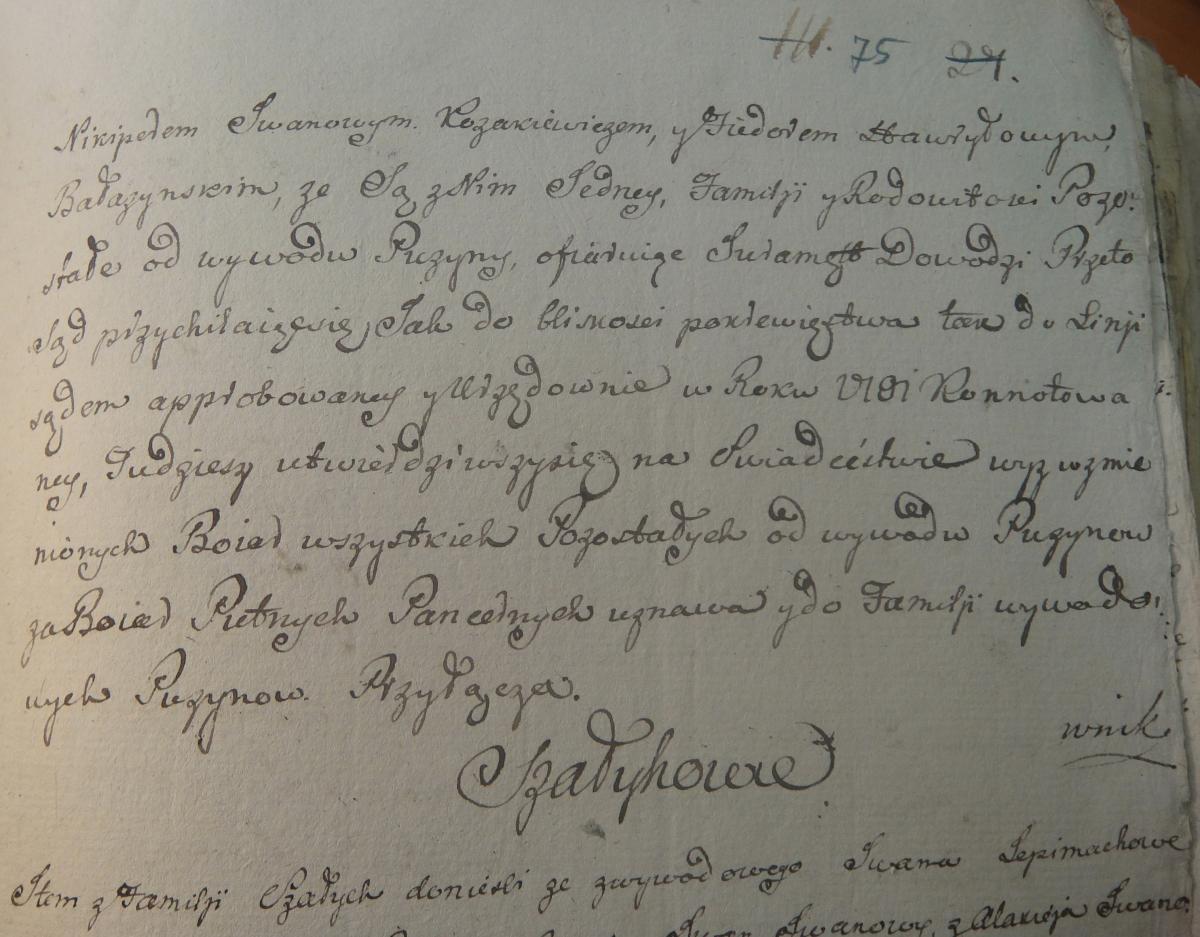 III. 75 24.
Nikiporem Iwanowym. Kozakiewiczem, y Fiedorem Hawryłowym
Bałazynskim, ze Są z Nim Jedney, Familji y Rodowitosci Pozo:
stałe od wywodu Puzyny, ofiaruiąc Dowodzi Przeto
Sąd przychilaiącsię, Jak do bliskosci pokrewięstwa tak do Linji
sądem approbowaney y Urzędownie w Roku Konnotowa
ney, Tudziesz utwierdziwszysię na Swiadcéstwie wyz wzmie
nionych Boiar wszystkich Pozostałych od wywodu Puzynow
za Boiar Putnych Pancernych uznawa y do Familji wywodo:
wych Puzynow. Przyłącza.
wnik
Szałyhowie
Item z Familji Szałych donieśli ze zwywodowego Iwana Lepimachowe
Iwan Iwanowy, z Iwano